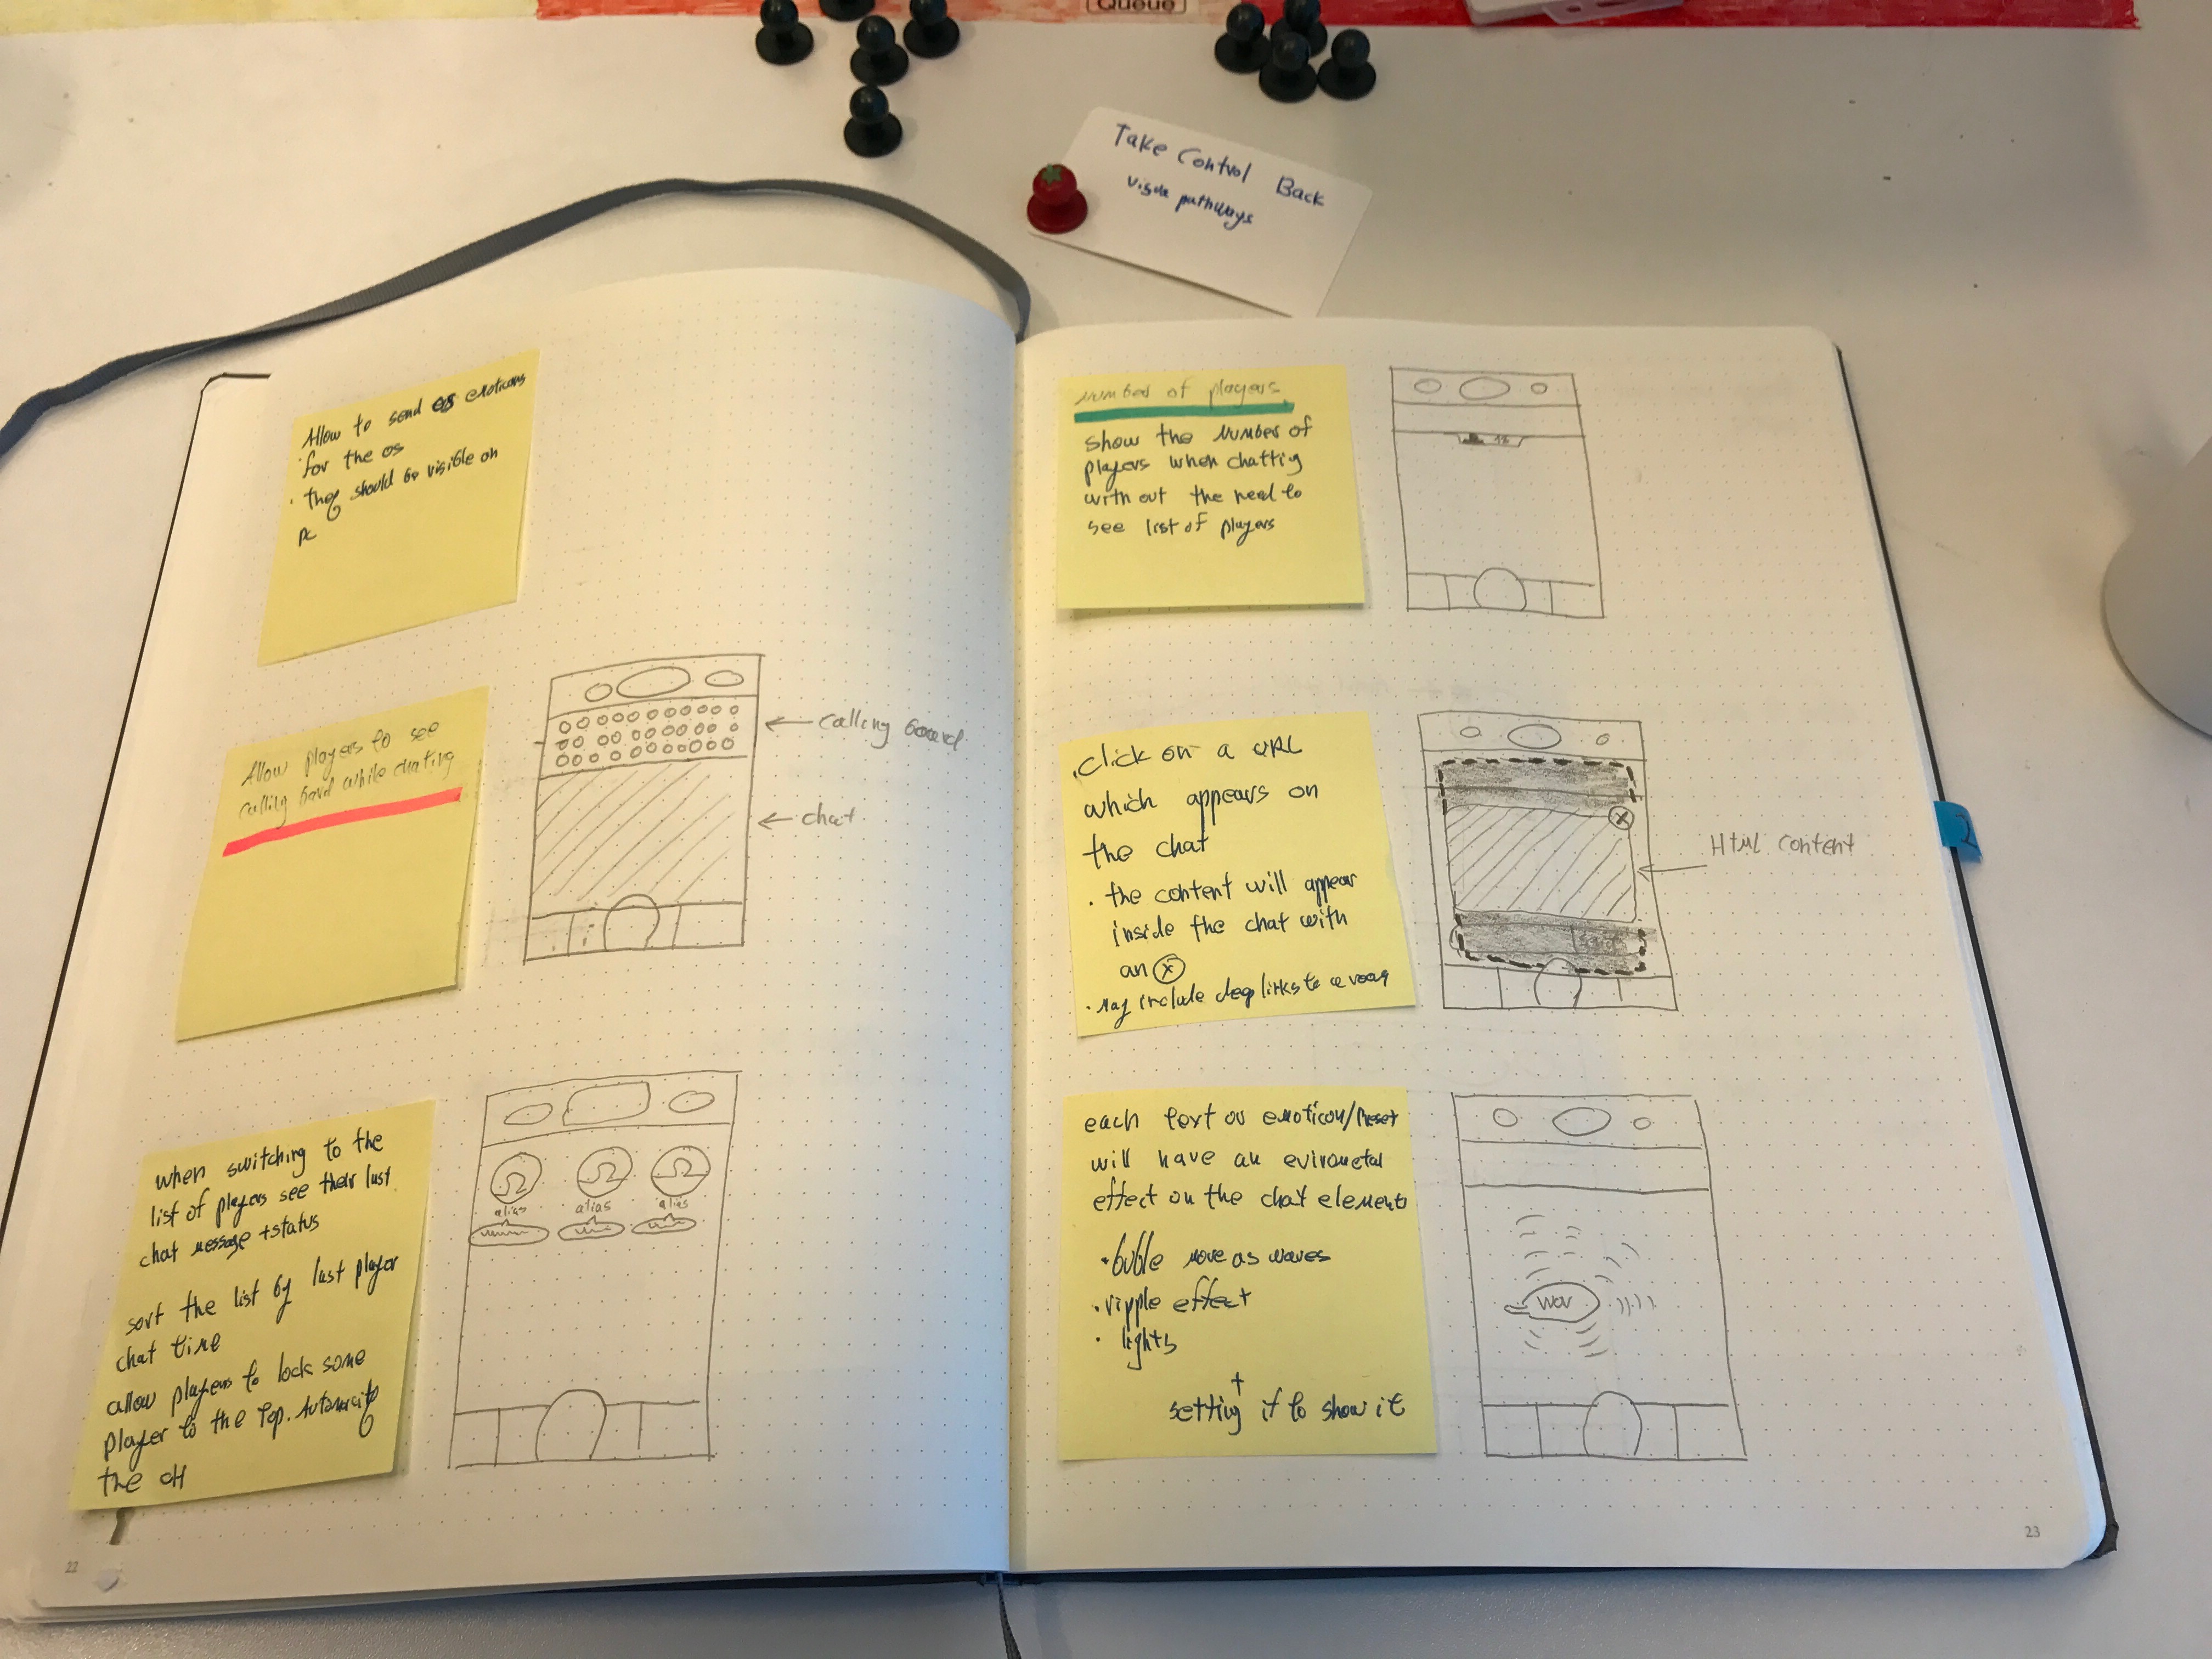 Queue
Take Control Back
pathways
Allow to send os emoticons
for the os
• they should be visible on
pc
Allow players to see
calling bard while chating
calling board
chat
when switching to the
list of players see their last
chat message + status
sort the list by last player
chat time
allow players to lock some
player to the top.
the
alias
alias
alias
22
Number of players
show the number of
players when chatting
with out the need to
see list of players
• click on a URL
which appears on
the chat
• the content will appear
inside the chat with
an X
• may include deep links to a
X
Html content
2
each text or emoticon/Preset
will have an
effect on the chat elements
• buble move as waves
• ripple effect
• lights
+
setting if to show it
wow
23